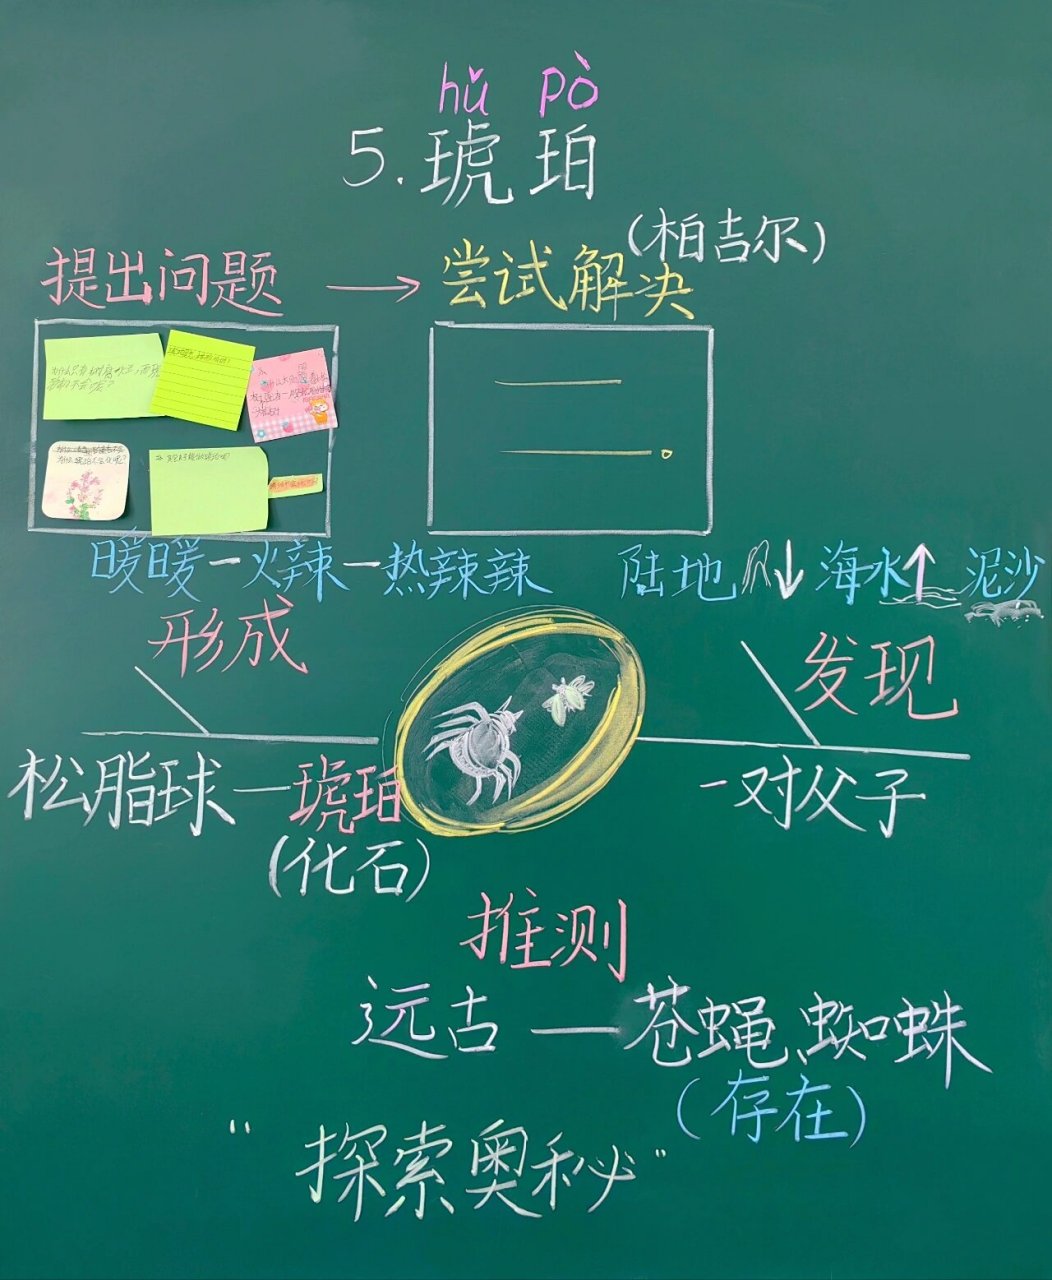 hǔ pò
5.琥珀
(柏吉尔)
提出问题 → 尝试解决
暖暖一火辣一热辣辣 陆地↓海水↑泥沙
形成
发现
松脂球—琥珀
(化石)
一对父子
推测
远古—苍蝇、蜘蛛
(存在)
“探索奥秘”